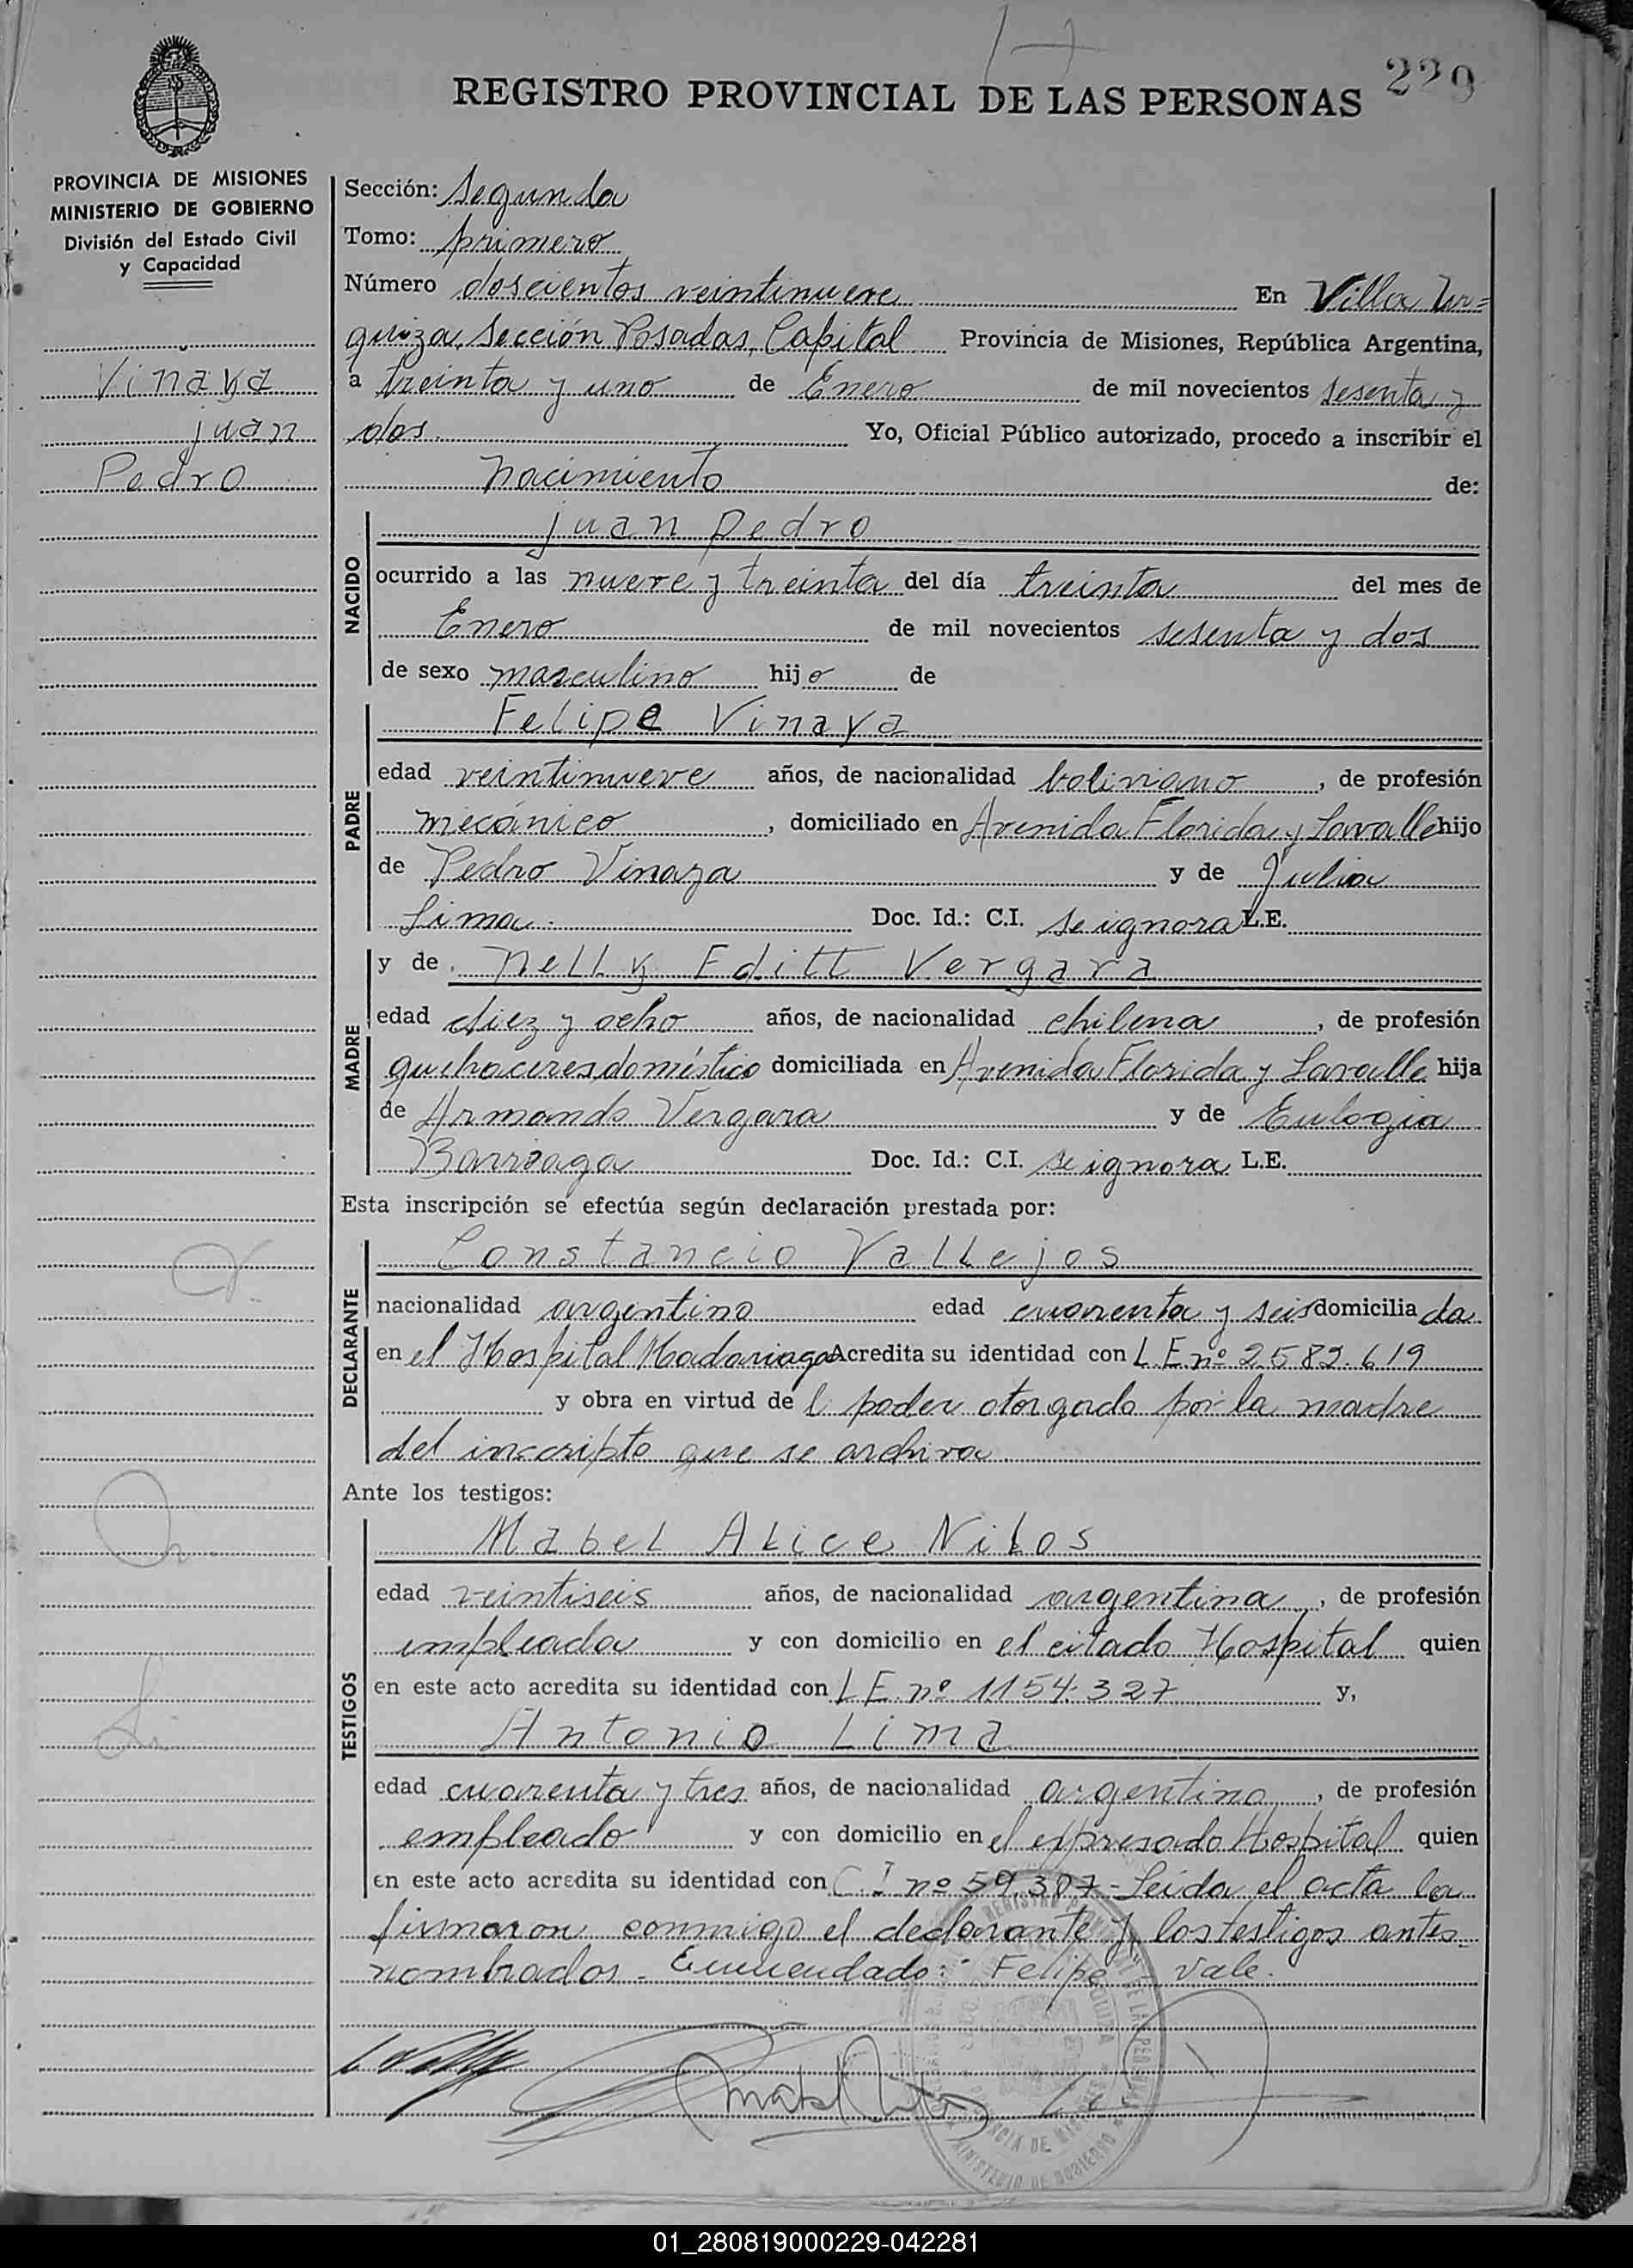 229
REGISTRO PROVINCIAL DE LAS PERSONAS
PROVINCIA DE MISIONES
MINISTERIO DE GOBIERNO
División del Estado Civil
y Capacidad
Vinaya
Juan
Pedro
Sección: Segunda
Tomo: primero
Número doscientos veintinueve En Villa Ur=
quiza, Sección Posadas, Capital Provincia de Misiones, República Argentina,
a treinta y uno de Enero de mil novecientos sesenta y
dos. Yo, Oficial Público autorizado, procedo a inscribir el
Nacimiento de:
NACIDO
Juan Pedro
ocurrido a las nueve y treinta del día treinta del mes de
Enero de mil novecientos sesenta y dos
de sexo masculino hijo de
PADRE
Felipe Vinaya
edad veintinueve años, de nacionalidad boliviano, de profesión
mecánico, domiciliado en Avenida Florida y Lavalle hijo
de Pedro Vinaya y de Julia
Lima. Doc. Id.: C.I. se ignora L.E.
MADRE
y de Nelly Editt Vergara
edad diez y ocho años, de nacionalidad chilena, de profesión
quehaceres doméstico domiciliada en Avenida Florida y Lavalle hija
de Armando Vergara y de Eulogia
Barriaga Doc. Id.: C.I. se ignora L.E.
Esta inscripción se efectúa según declaración prestada por:
DECLARANTE
Constancio Vallejos
nacionalidad argentino edad cuarenta y seis domicilia da
en el Hospital Madariaga Acredita su identidad con L.E. nº 2582.619
y obra en virtud de l poder otorgado por la madre
del inscripto que se archiva.
Ante los testigos:
TESTIGOS
Mabel Alice Nilos
edad veintiseis años, de nacionalidad argentina, de profesión
empleada y con domicilio en el citado Hospital quien
en este acto acredita su identidad con L.E. nº 1154.327 y,
Antonio Lima
edad cuarenta y tres años, de nacionalidad argentino, de profesión
empleado y con domicilio en el expresado Hospital quien
en este acto acredita su identidad con C.I nº 59.307 - Leída el acta la
firmaron conmigo el declarante y los testigos antes
nombrados. Enmendado: "Felipe" Vale.
01_280819000229-042281